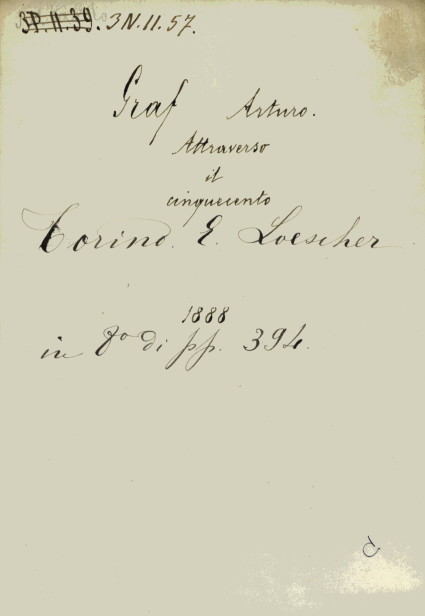 3P.11.39. 3N.11.57.
Graf Arturo.
Attraverso
il
cinquecento
Torino. E. Loescher
1888
in 8º di pp. 394.